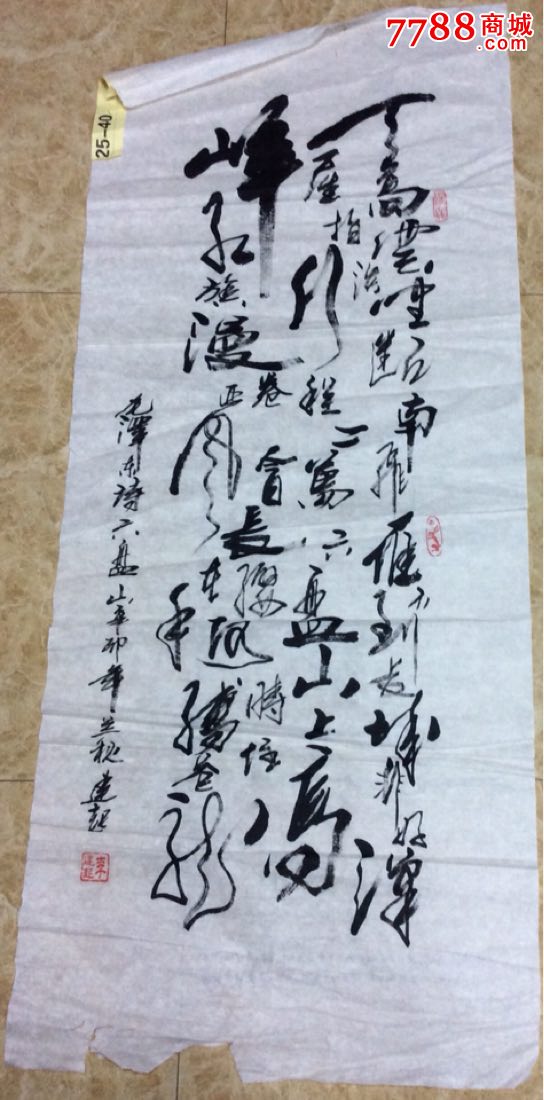 7788商城
.com
25-40
天高雲淡望斷南飛雁不到长城非好漢
屈指行程二萬六盘山上高
峰红旗漫卷西风今日長缨在手何時缚住苍龙
毛澤东詩六盘山辛卯年兰秋建起